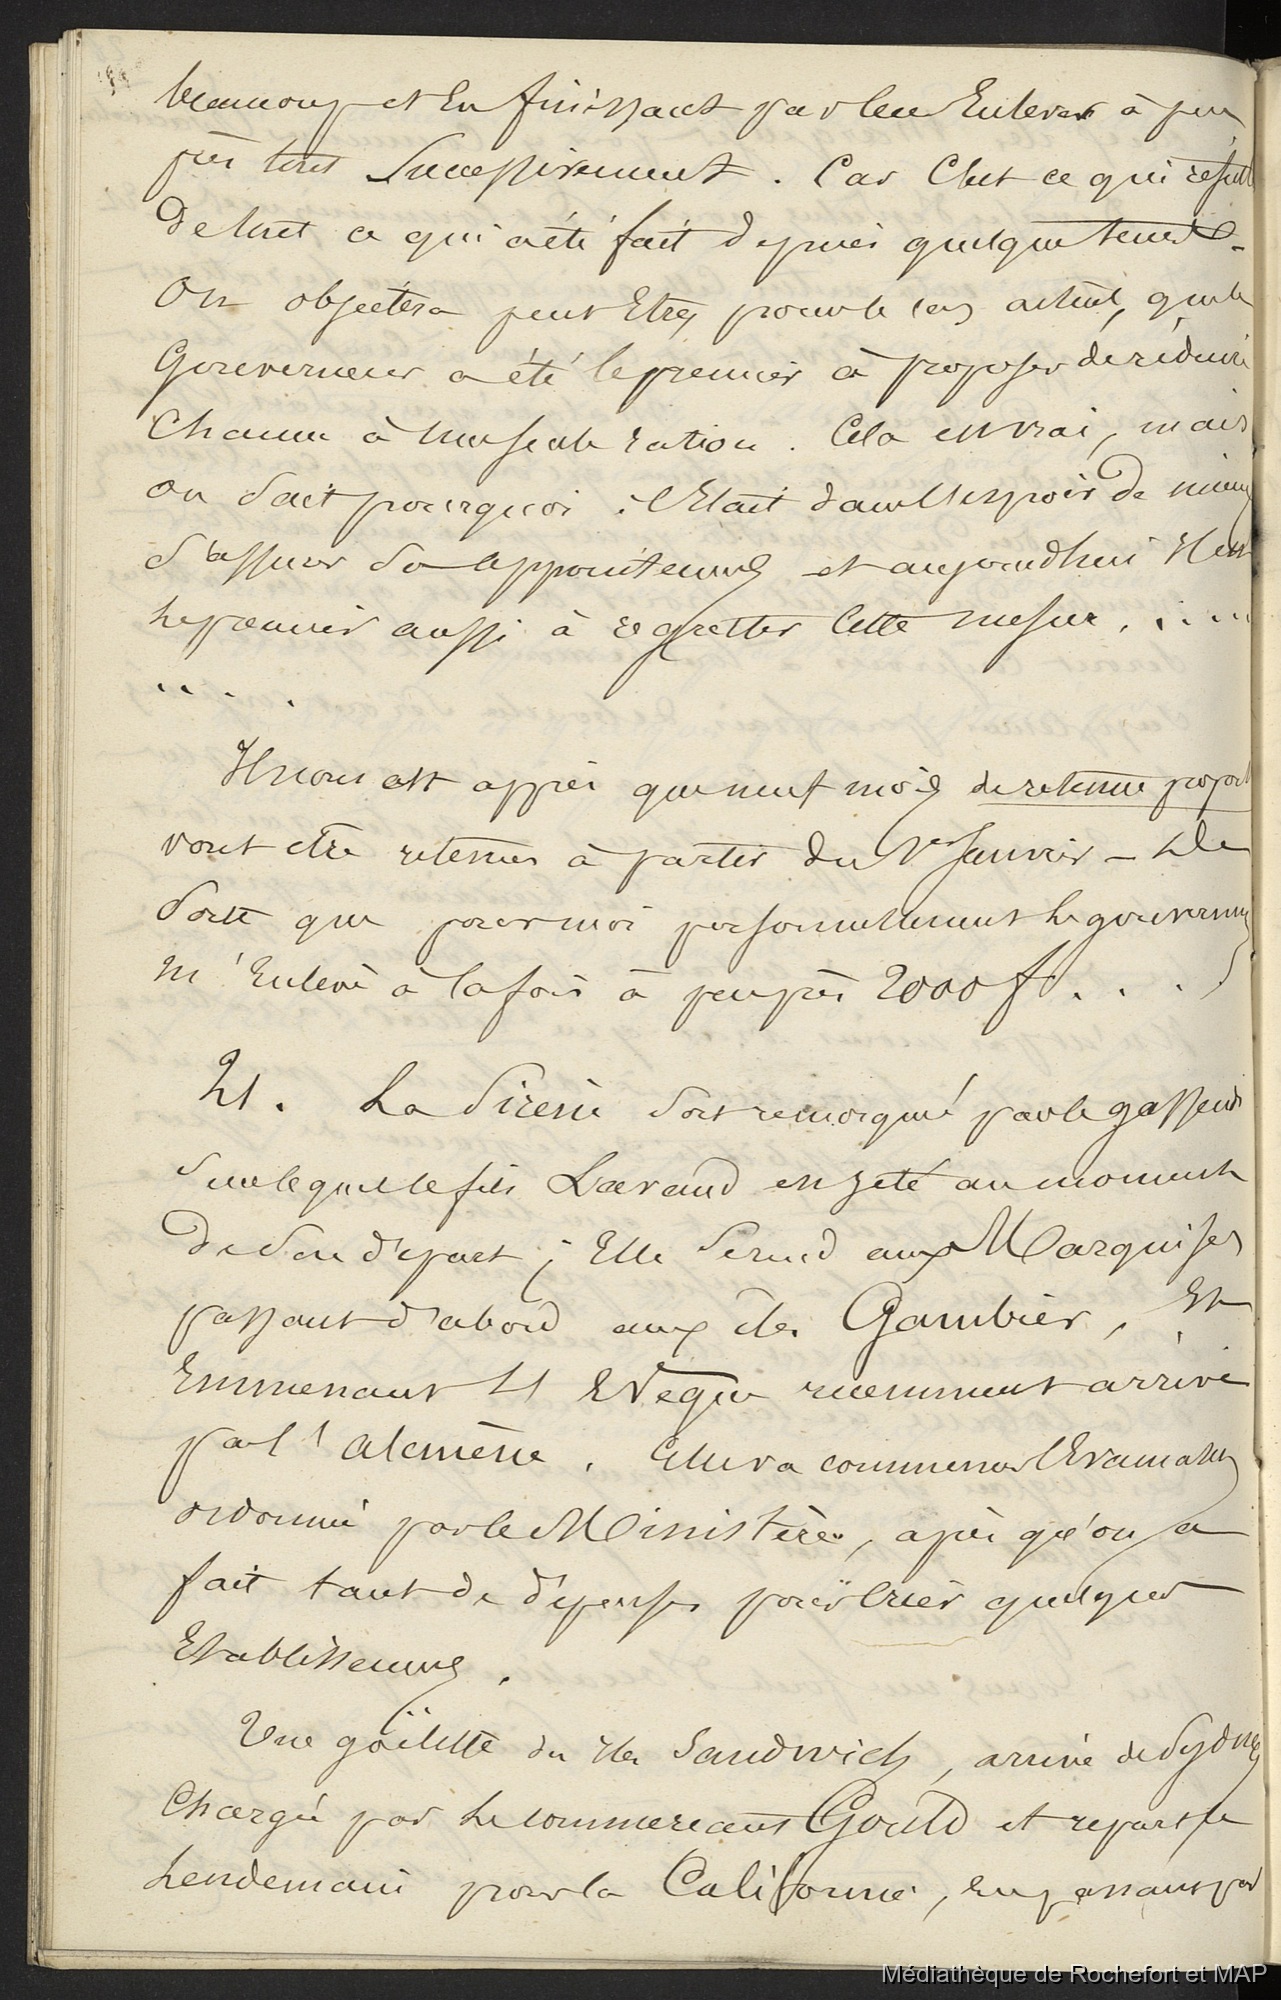 beaucoup et en finissant par leur Enlever à peu
près tout Successivement. Car C'est ce qui résulte
de tout ce qui a été fait depuis quelque temps -
On objectera peut Etre, pour le cas actuel, que le
Gouverneur a été le premier à proposer de réduire
Chacun à une seule ration. Cela est vrai, mais
on sait pourquoi: C'Etait dans l'espoir de mieux
s'assurer son appointement et aujourd'hui Il est
le premier aussi à regretter Cette mesure. . . . .
. . . .
Il nous est appris que neuf mois de retenue
vont etre retenus à partir du 1er Janvier - De
Sorte que pour moi personnellement le gouverneur
m'Enlève à la fois à peu près 2000 f. . . .
21. La Sirène sort remorqué par le gassendi
sur lequel le fils Lavaud est jeté au moment
de son départ; Elle se rend aux Marquises
passant d'abord aux iles Gambier, Et
Emmenant l'Evêque récemment arrivé
par l'alcmène. Elle va commencer l'Evacuation
ordonné par le Ministère, après qu'on a
fait tant de dépenses pour Créer quelques
Etablissements.
Une goëlette des Iles Sandwich, arrive de Sydney
Chargée par le commercant Gould et repart le
Lendemain pour la Californie, en passant par
Médiathèque de Rochefort et MAP